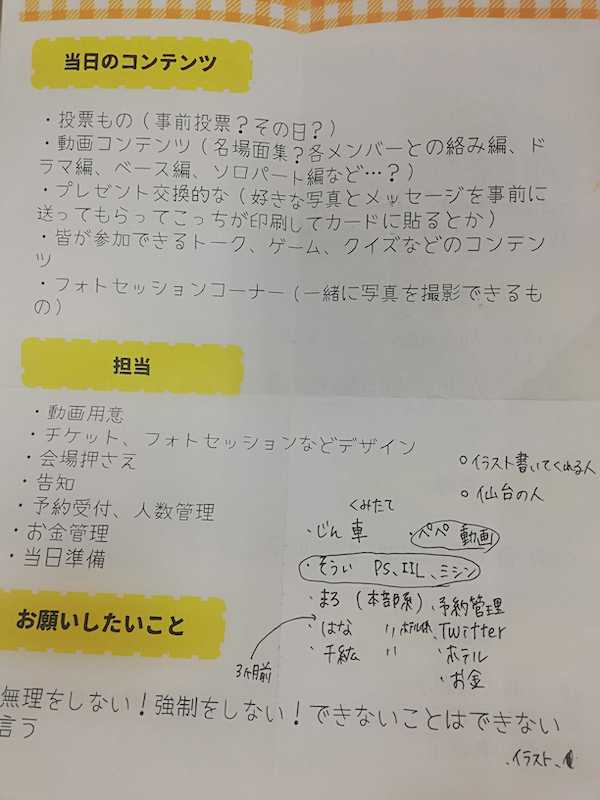 当日のコンテンツ
・投票もの(事前投票?その日?)
・動画コンテンツ(名場面集?各メンバーとの絡み編、ド
ラマ編、ベース編、ソロパート編など…?)
・プレゼント交換的な(好きな写真とメッセージを事前に
送ってもらってこっちが印刷してカードに貼るとか)
・皆が参加できるトーク、ゲーム、クイズなどのコンテン
ツ
・フォトセッションコーナー(一緒に写真を撮影できるも
の)
担当
・動画用意
・チケット、フォトセッションなどデザイン
・会場押さえ
・告知
・予約受付、人数管理
・お金管理
・当日準備
○イラスト書いてくれる人
○仙台の人
くみたて
・じん 車 ・ペペ 動画
・そうい PS、IIL、ミシン
・まろ (本部系) ・予約管理
・はな 〃 ホテル ・Twitter
・千紘 〃 ・ホテル
・お金
3ヶ月前
お願いしたいこと
無理をしない!強制をしない!できないことはできない
言う
・イラスト、